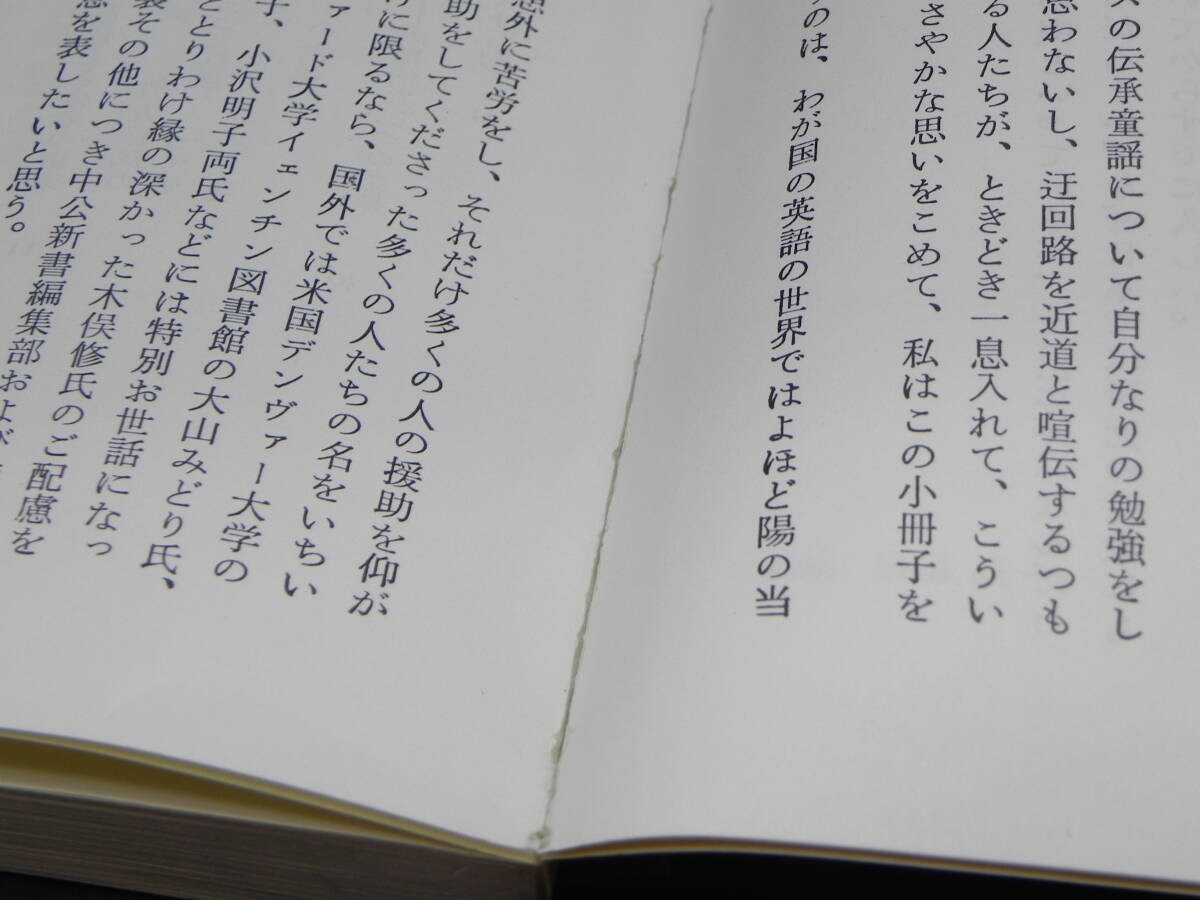 スの伝承童謡について自分なりの勉強をし
思わないし、迂回路を近道と喧伝するつも
る人たちが、ときどき一息入れて、こうい
さやかな思いをこめて、私はこの小冊子を
のは、わが国の英語の世界ではよほど陽の当
意外に苦労をし、それだけ多くの人の援助を仰が
助をしてくださった多くの人たちの名をいちい
けに限るなら、国外では米国デンヴァー大学の
ァード大学イェンチン図書館の大山みどり氏、
子、小沢明子両氏などには特別お世話になっ
ととりわけ縁の深かった木俣修氏のご配慮を
その他につき中公新書編集部および
を表したいと思う。